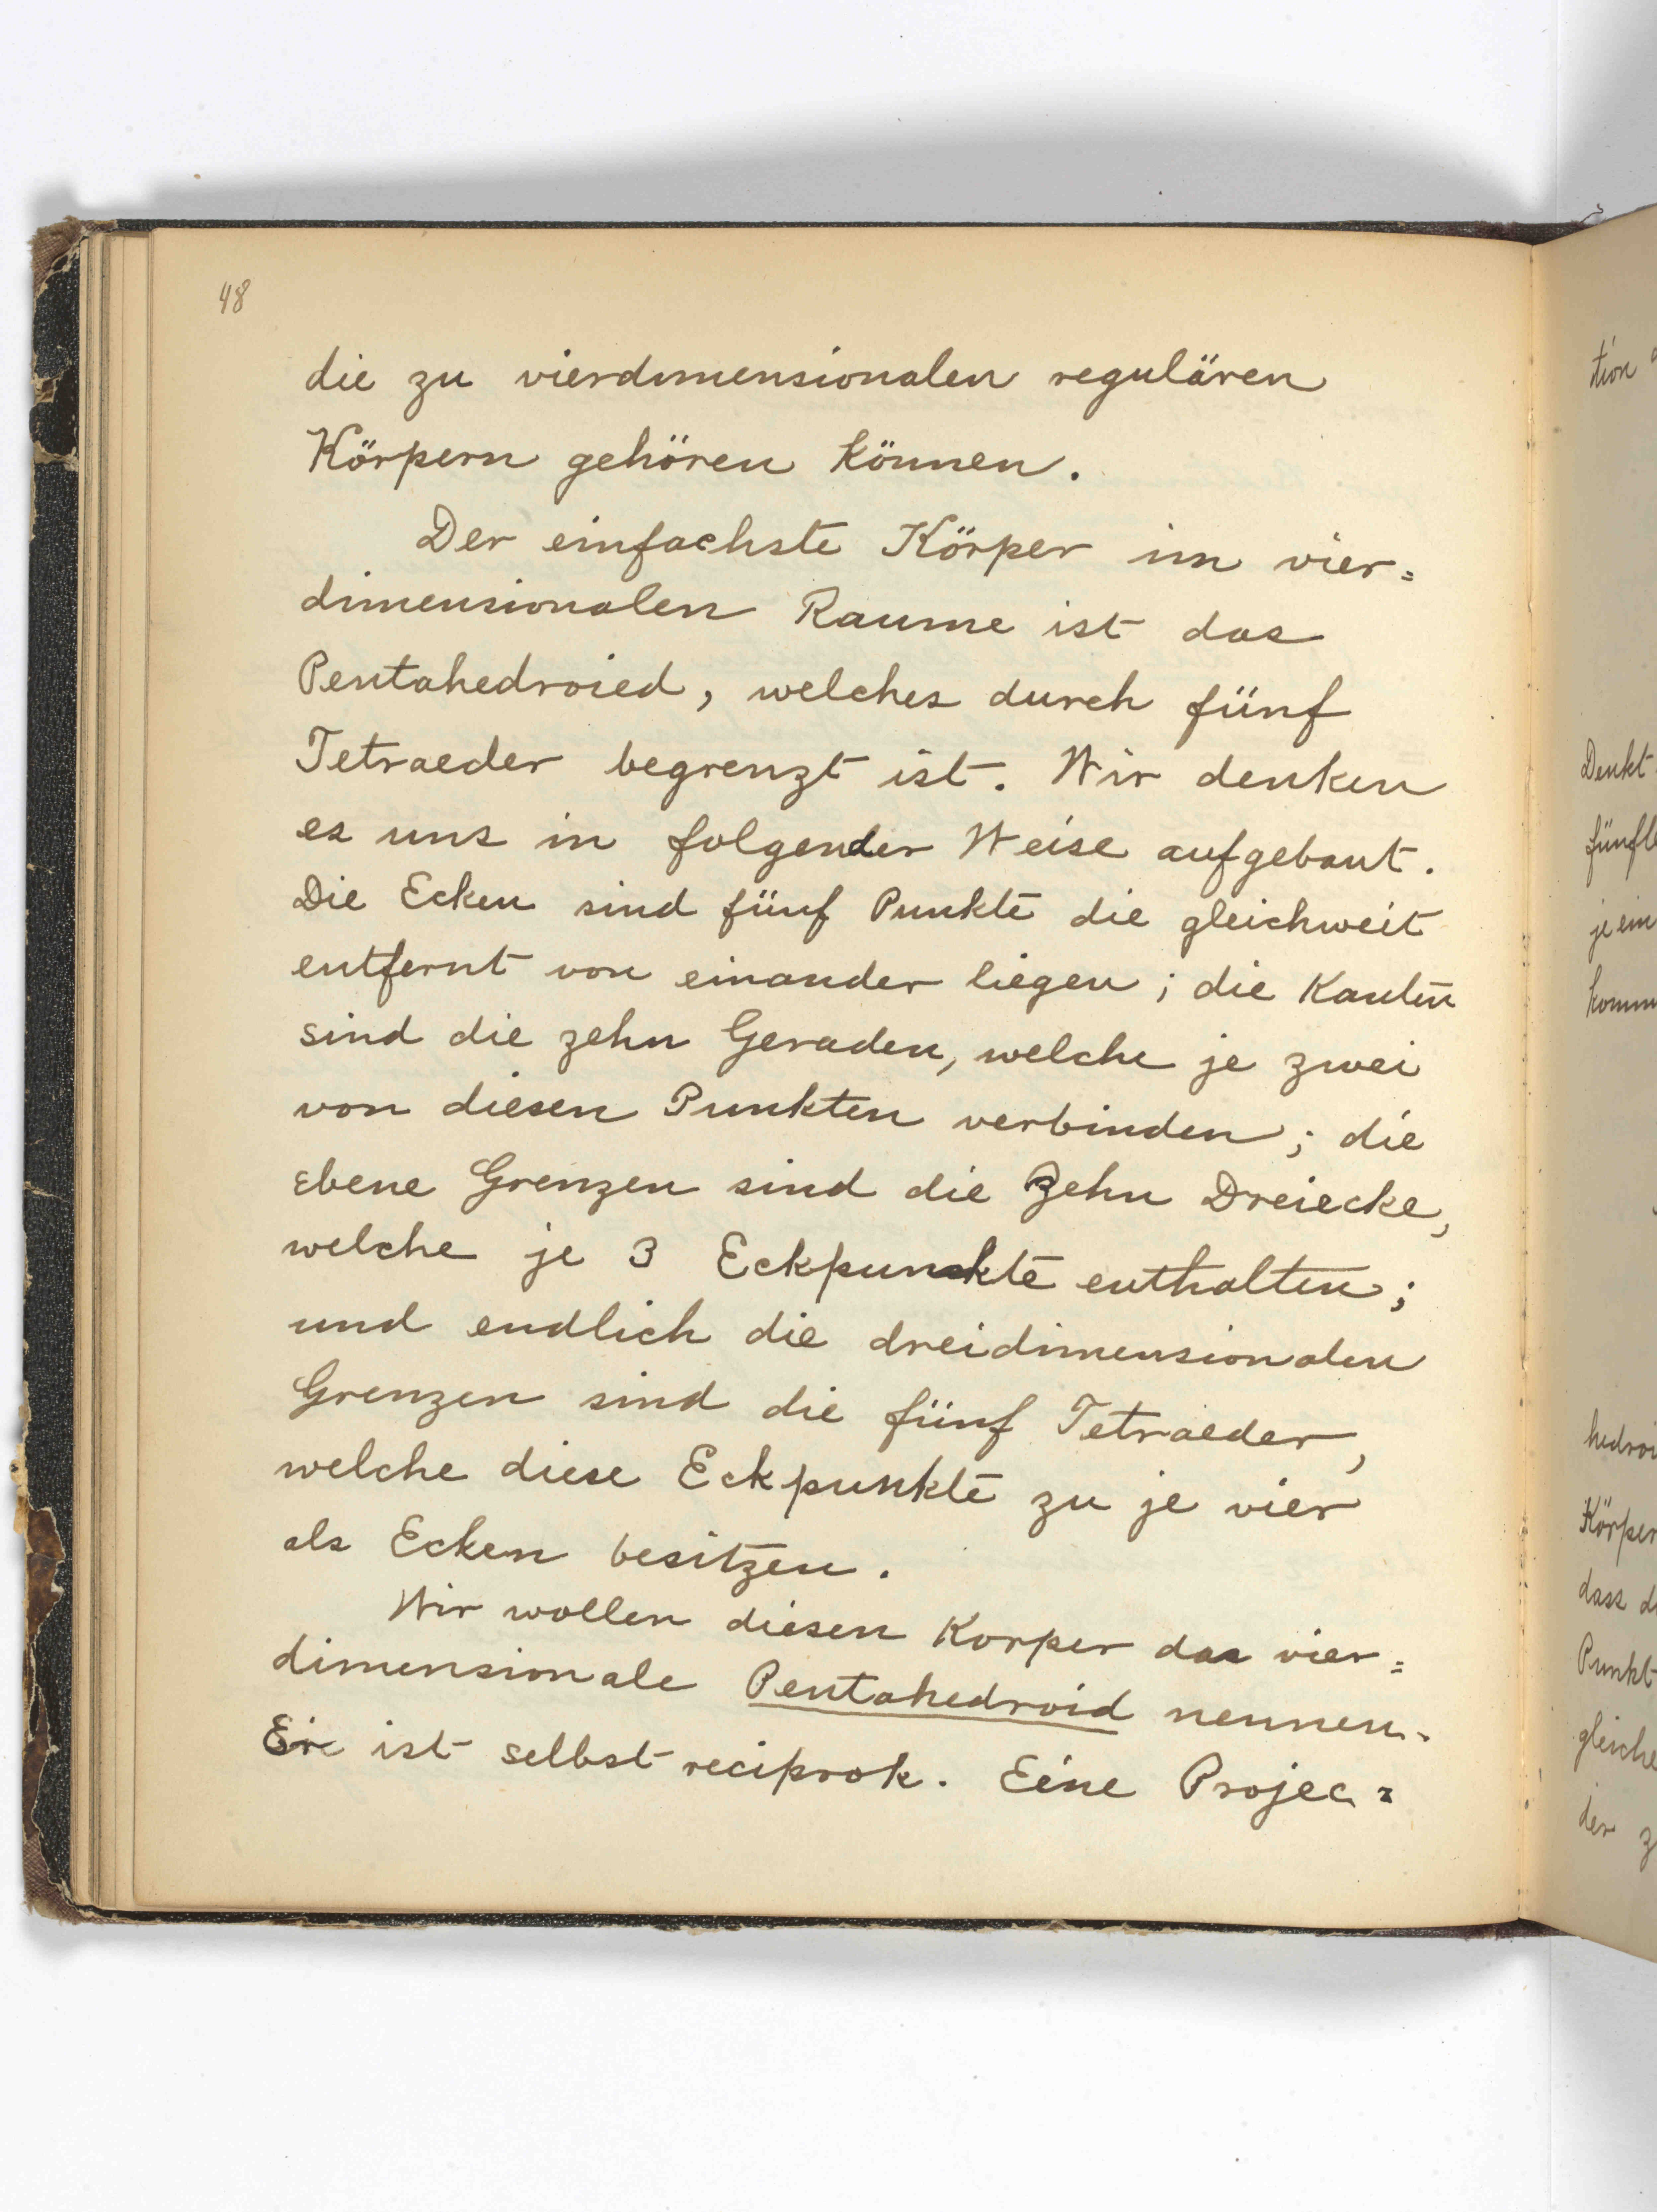 48
die zu vierdimensionalen regulären
Körpern gehören können.
Der einfachste Körper im vier=
dimensionalen Raume ist das
Pentahedroied, welches durch fünf
Tetraeder begrenzt ist. Wir denken
es uns in folgender Weise aufgebaut.
Die Ecken sind fünf Punkte die gleichweit
entfernt von einander liegen; die Kanten
sind die zehn Geraden, welche je zwei
von diesen Punkten verbinden; die
ebene Grenzen sind die Zehn Dreiecke,
welche je 3 Eckpunkte enthalten;
und endlich die dreidimensionalen
Grenzen sind die fünf Tetraeder,
welche diese Eckpunkte zu je vier
als Ecken besitzen.
Wir wollen diesen Korper das vier=
dimensionale Pentahedroid nennen.
Er ist selbst reciprok. Eine Projec=
tion
Denkt
fünfl
je ein
komm
hedroi
Körper
dass d
Punkt
gleiche
der z